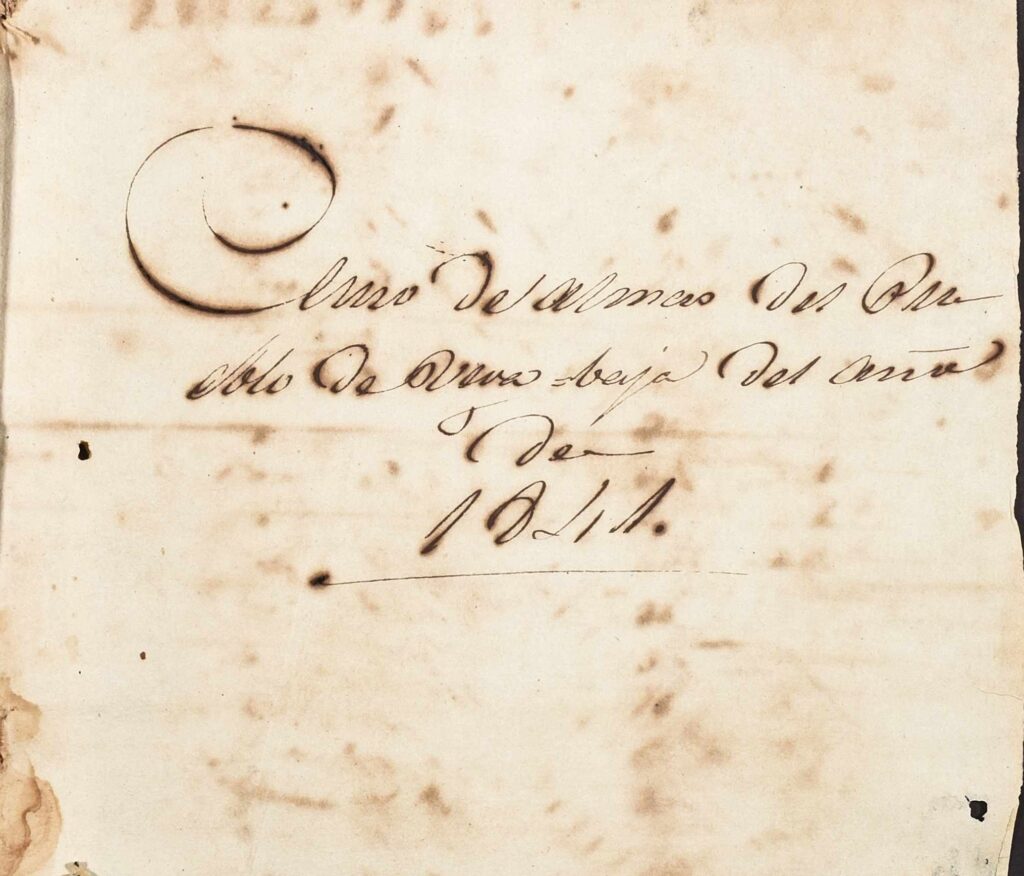 Censo de almas del Pue
blo de Vega =baja del año
de
1841.